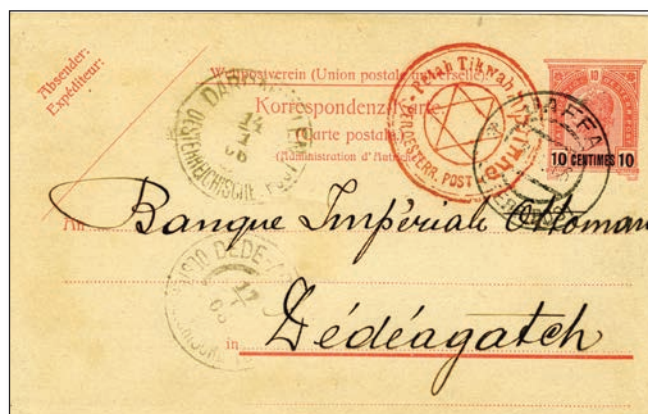 Absender:
Expéditeur:
Weltpostverein (Union postale universelle).
Korrespondenz-Karte.
(Carte postale.)
(Administration d'Autriche)
DARDANELLEN
14
1
06
OESTERREICHISCHE POST
Petah Tikwah
OESTERR. POST
10
JAFFA
10 CENTIMES 10
An
Banque Impériale Ottoman
DEDE-
17
1
06
in
Dédéagatch